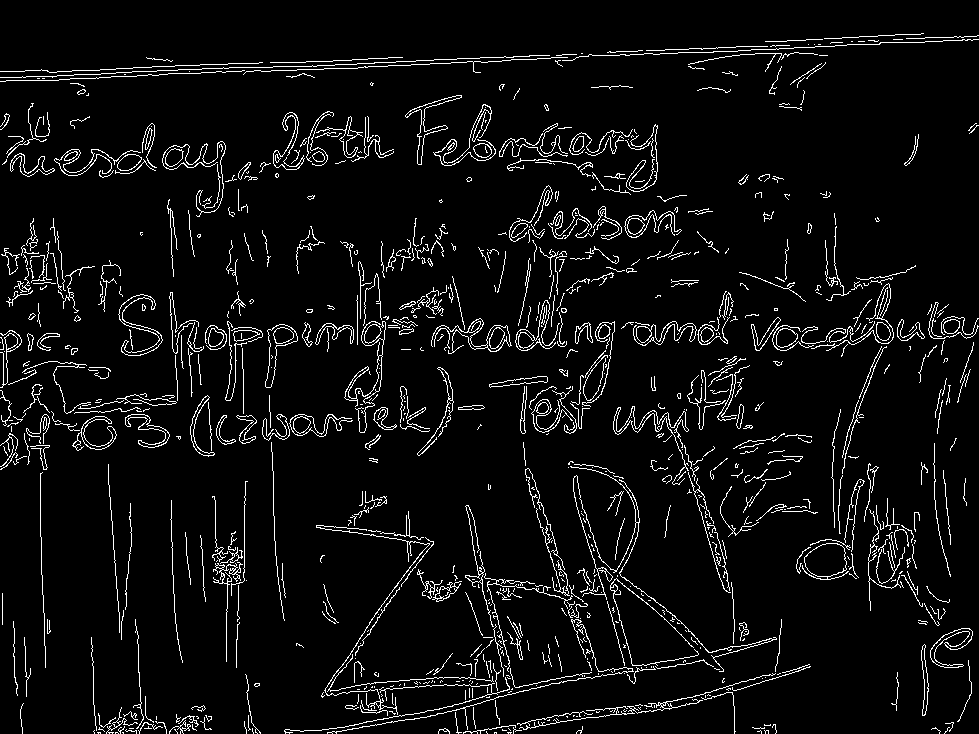 Tuesday, 26th February
Lesson
pic: Shopping - reading and vocabula
07.03 (czwartek) - Test unit 4
da